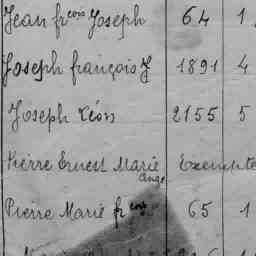 Jean frcois Joseph 64 1
Joseph françois J 1891 4
Joseph Léon 2155 5
Pierre Ernest Marie Exempte
ange
Pierre Marie frcois 65 1